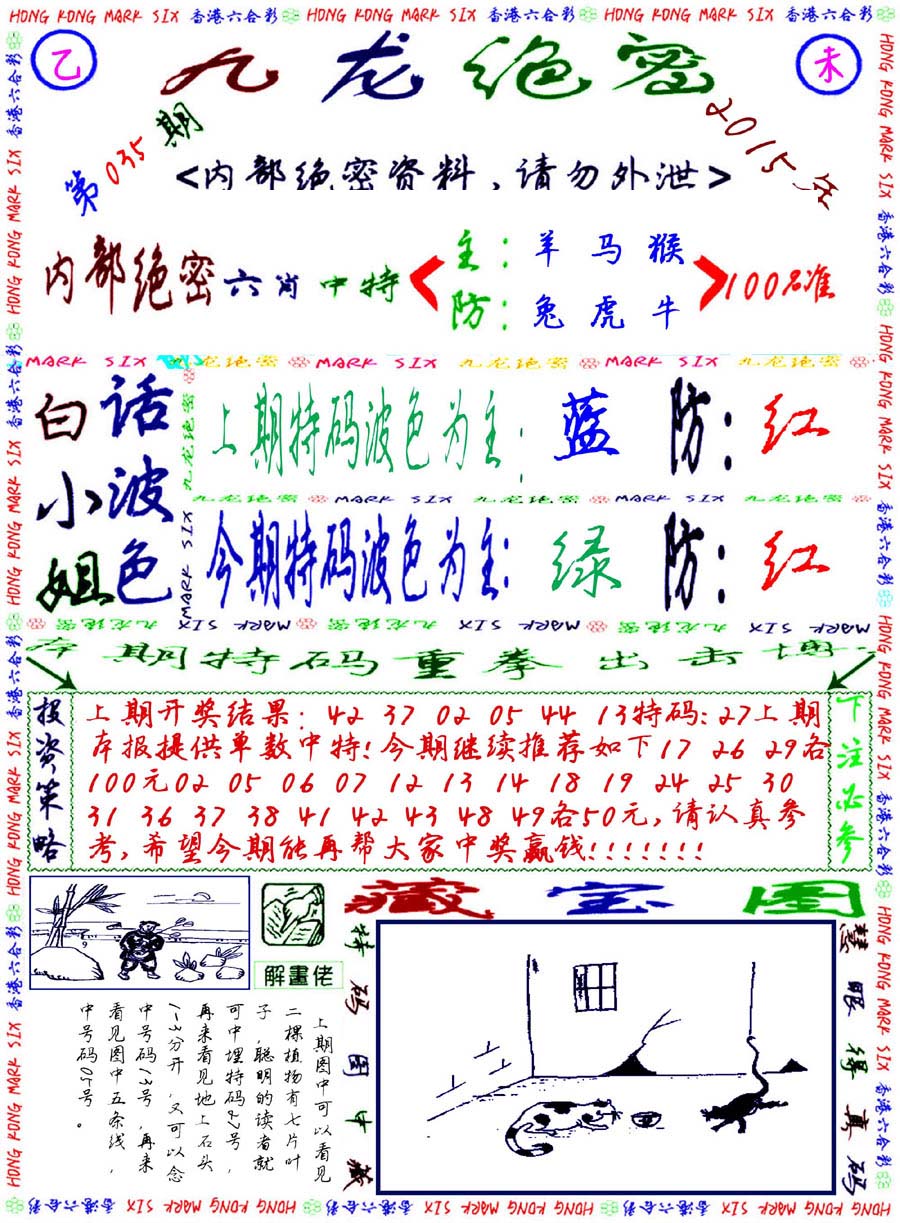 HONG KONG MARK SIX 香港六合彩 HONG KONG MARK SIX 香港六合彩 HONG KONG MARK SIX 香港六合彩
乙
九龙绝密
未
第035期
2015年
<内部绝密资料,请勿外泄>
内部绝密六肖中特
主:羊马猴
防:兔虎牛
100%准
MARK SIX 九龙绝密 MARK SIX 九龙绝密 MARK SIX 九龙绝密
白小姐
话波色
上期特码波色为主:蓝 防:红
九龙绝密 MARK SIX 九龙绝密 MARK SIX 九龙绝密
今期特码波色为主:绿 防:红
九龙绝密 MARK SIX 九龙绝密 MARK SIX 九龙绝密 MARK SIX
本期特码重拳出击博
投资策略
上期开奖结果:42 37 02 05 44 13特码:27上期
本报提供单数中特!今期继续推荐如下17 26 29各
100元02 05 06 07 12 13 14 18 19 24 25 30
31 36 37 38 41 42 43 48 49各50元,请认真参
考,希望今期能再帮大家中奖赢钱!!!!!!!
下注必参
解畫佬
藏宝图
特码图中藏
慧眼得真码
上期图中可以看见
二棵植物有七片叶
子,聪明的读者就
可中埋特码27号,
再来看见地上石头
1-3分开,又可以念
中号码13号,再来
看见图中五条线,
中号码05号。
HONG KONG MARK SIX 香港六合彩 HONG KONG MARK SIX 香港六合彩 HONG KONG MARK SIX 香港六合彩